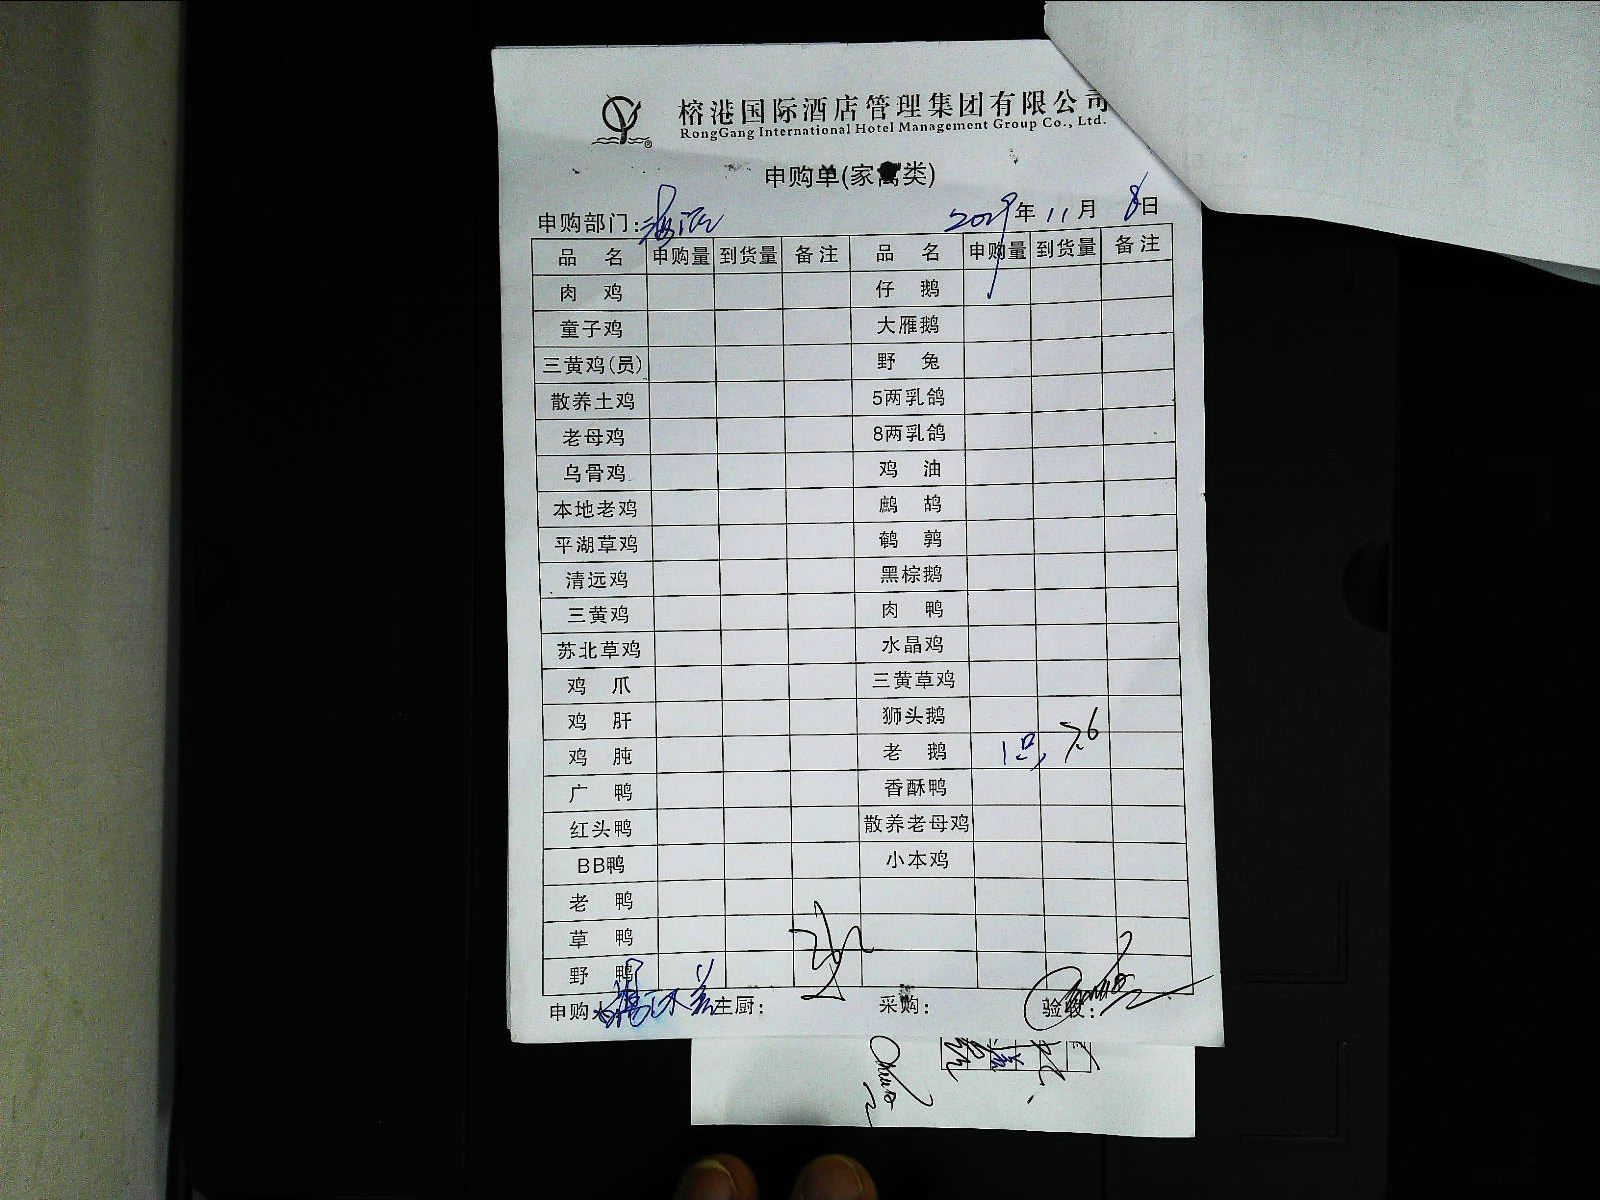 榕港国际酒店管理集团有限公司
RongGang International Hotel Management Group Co., Ltd.
申购单(家禽类)
申购部门: 年 11月 8日
品 名 申购量 到货量 备注 品 名 申购量 到货量 备注
肉 鸡 仔 鹅
童子鸡 大雁鹅
三黄鸡(员) 野 兔
散养土鸡 5两乳鸽
老母鸡 8两乳鸽
乌骨鸡 鸡 油
本地老鸡 鹧 鸪
平湖草鸡 鹌 鹑
清远鸡 黑棕鹅
三黄鸡 肉 鸭
苏北草鸡 水晶鸡
鸡 爪 三黄草鸡
鸡 肝 狮头鹅
鸡 肫 老 鹅 1只, 7.6
广 鸭 香酥鸭
红头鸭 散养老母鸡
BB鸭 小本鸡
老 鸭
草 鸭
野 鸭
申购人 主厨: 采购: 验收: